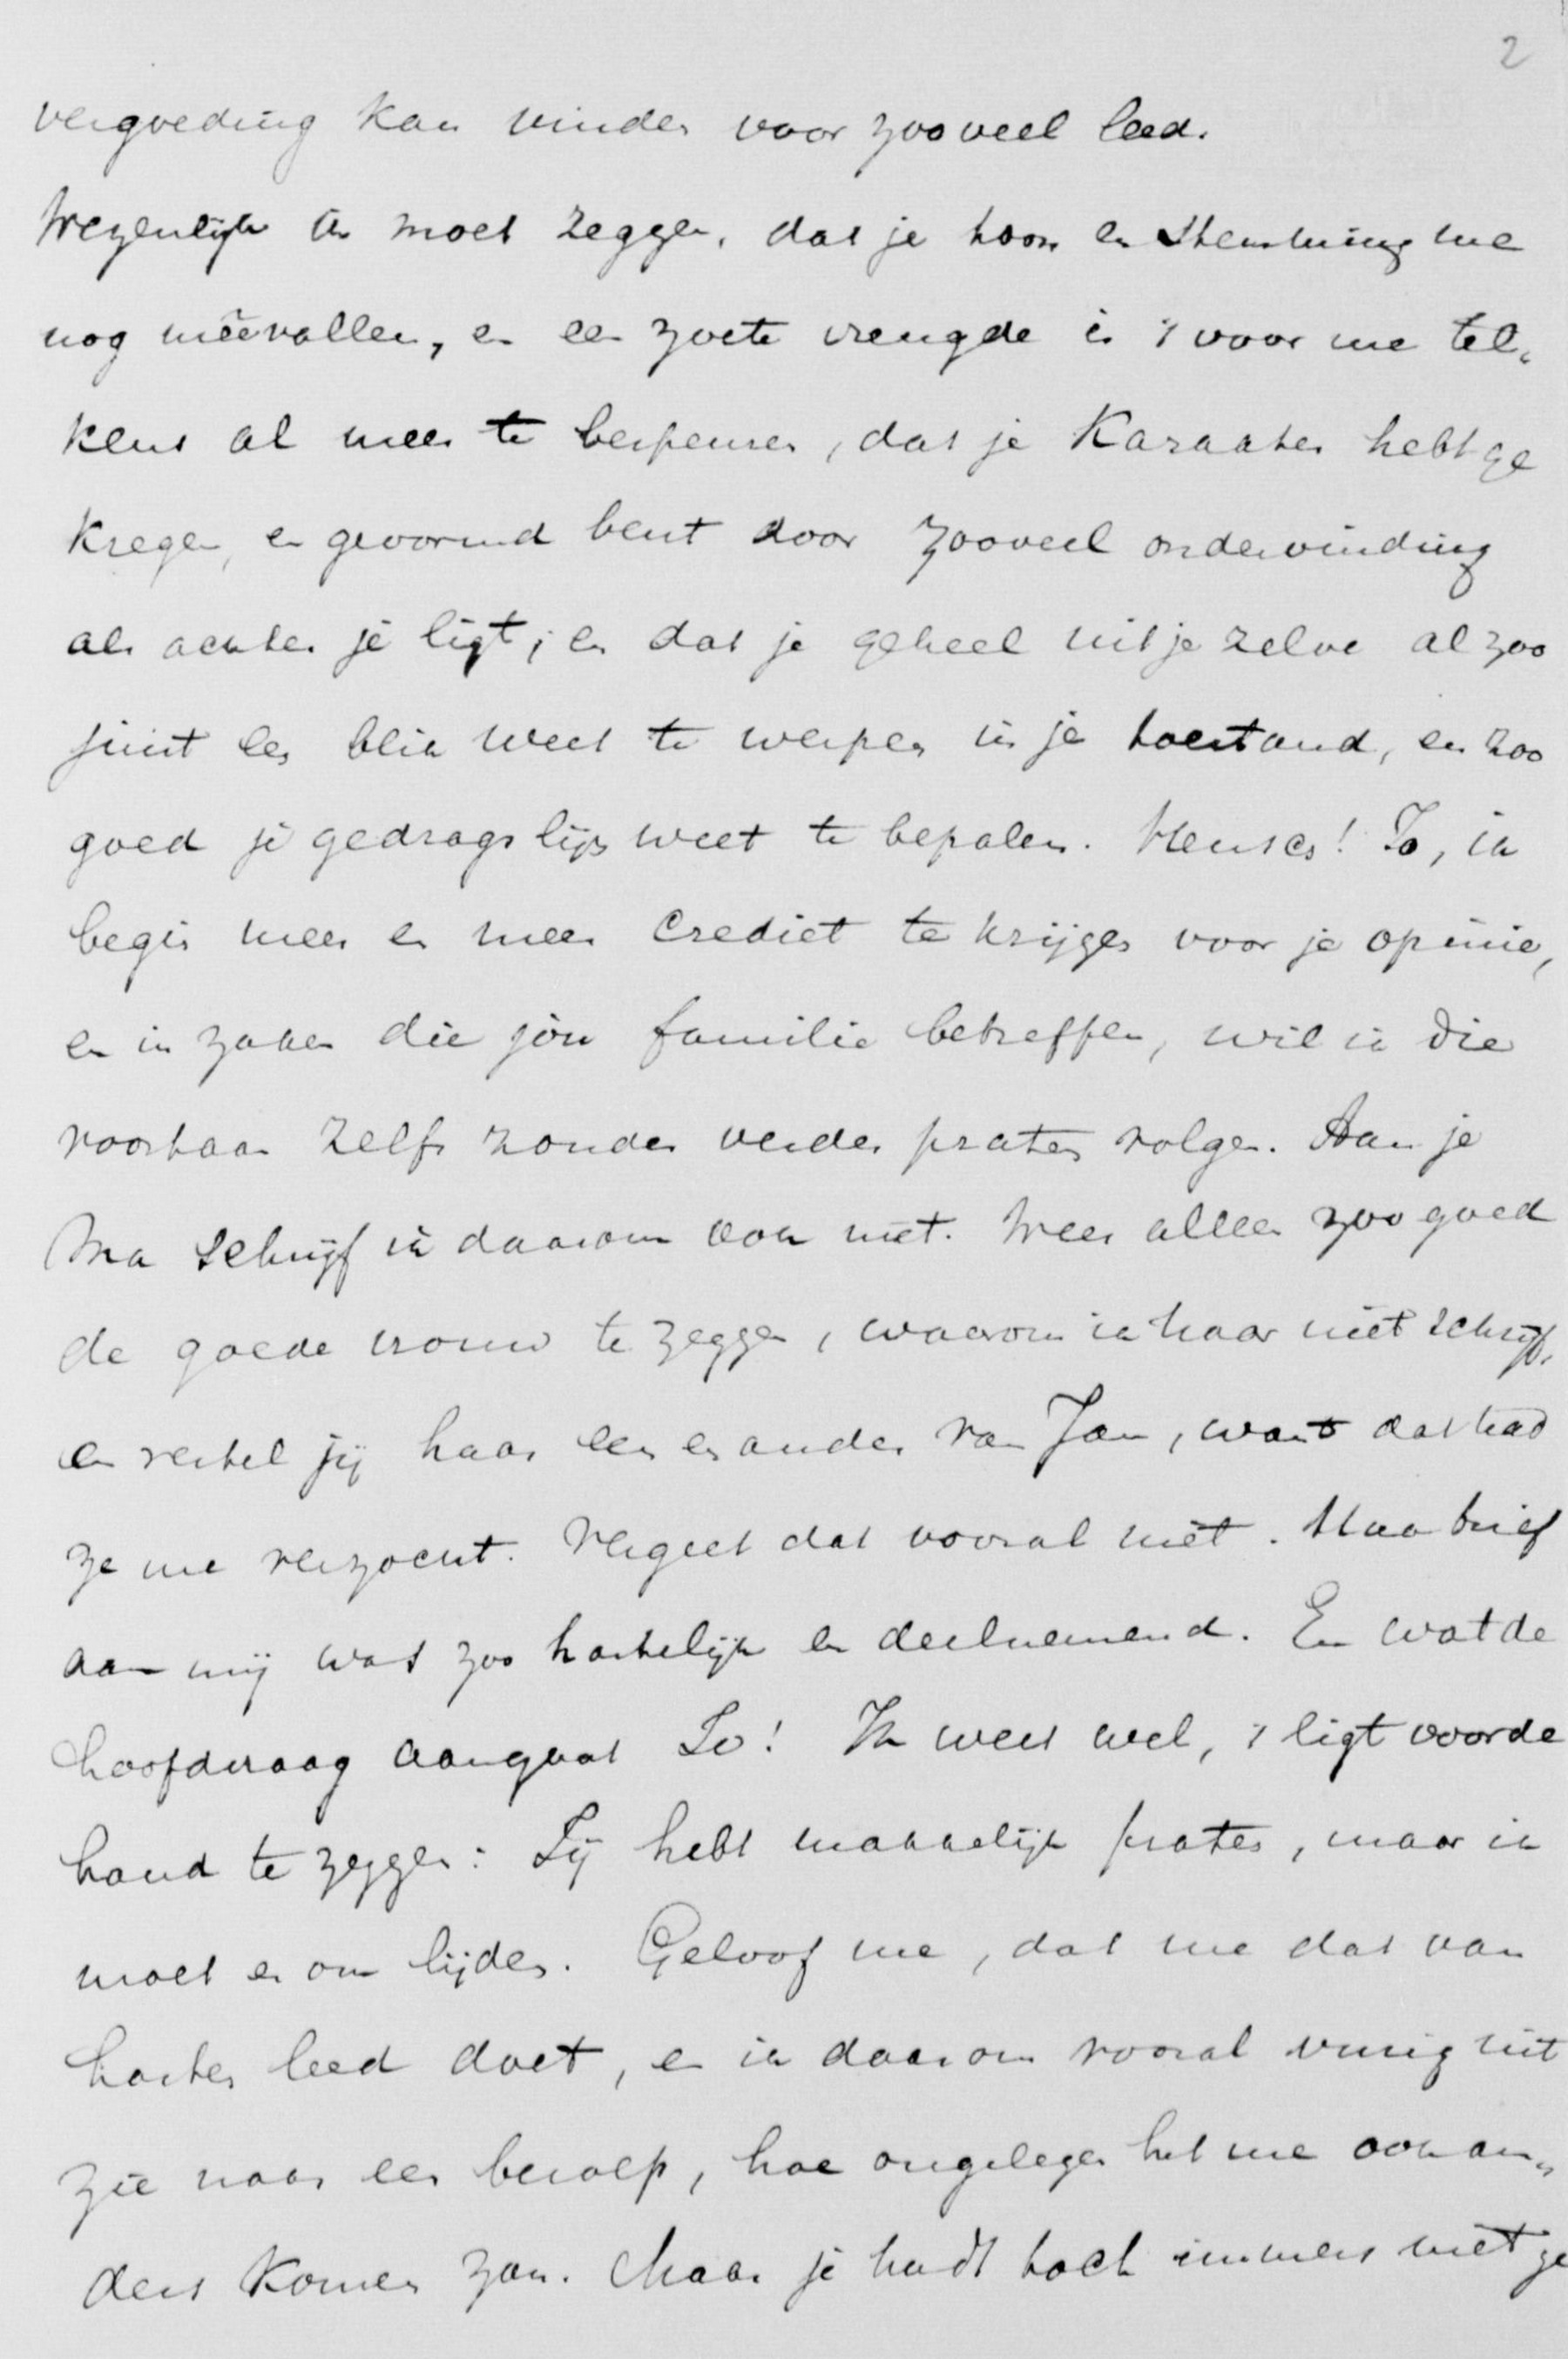 2
vergoeding kan vinden voor zooveel leed.
Wezenlijk ik moet zeggen, dat je toon en stemming me
nog meêvallen, en een zoete vreugde is 't voor me tel„
kens al meer te bespeuren, dat je Karaakter hebt ge
kregen, en gevormd bent door zooveel ondervinding
als achter je ligt; en dat je geheel uit je zelve al zoo
juist een blik weet te werpen in je toestand, en zoo
goed je gedragslijn weet te bepalen. Heusch! Jo, ik
begin meer en meer Crediet te krijgen voor je opinie,
en in zaken die jou familie betreffen, wil ik die
voortaan zelfs zonder verder praten volgen. Aan je
Ma schrijf ik daarom ook niet. Wees alleen zoo goed
de goede vrouw te zeggen, waarom ik haar niet schrijf,
en vertel jij haar een en ander van Jan, want dat had
ze me verzocht. Vergeet dat vooral niet. Haar brief
aan mij was zoo hartelijk en deelnemend. En wat de
hoofdvraag aangaat Jo! Ik weet wel, 't ligt voor de
hand te zeggen: Jij hebt makkelijk praten, maar ik
moet er om lijden. Geloof me, dat me dat van
harten leed doet, en ik daarom vooral vurig uit
zie naar een beroep, hoe ongelegen het me ook an„
ders komen zou. Maar je hadt toch immers niet ge